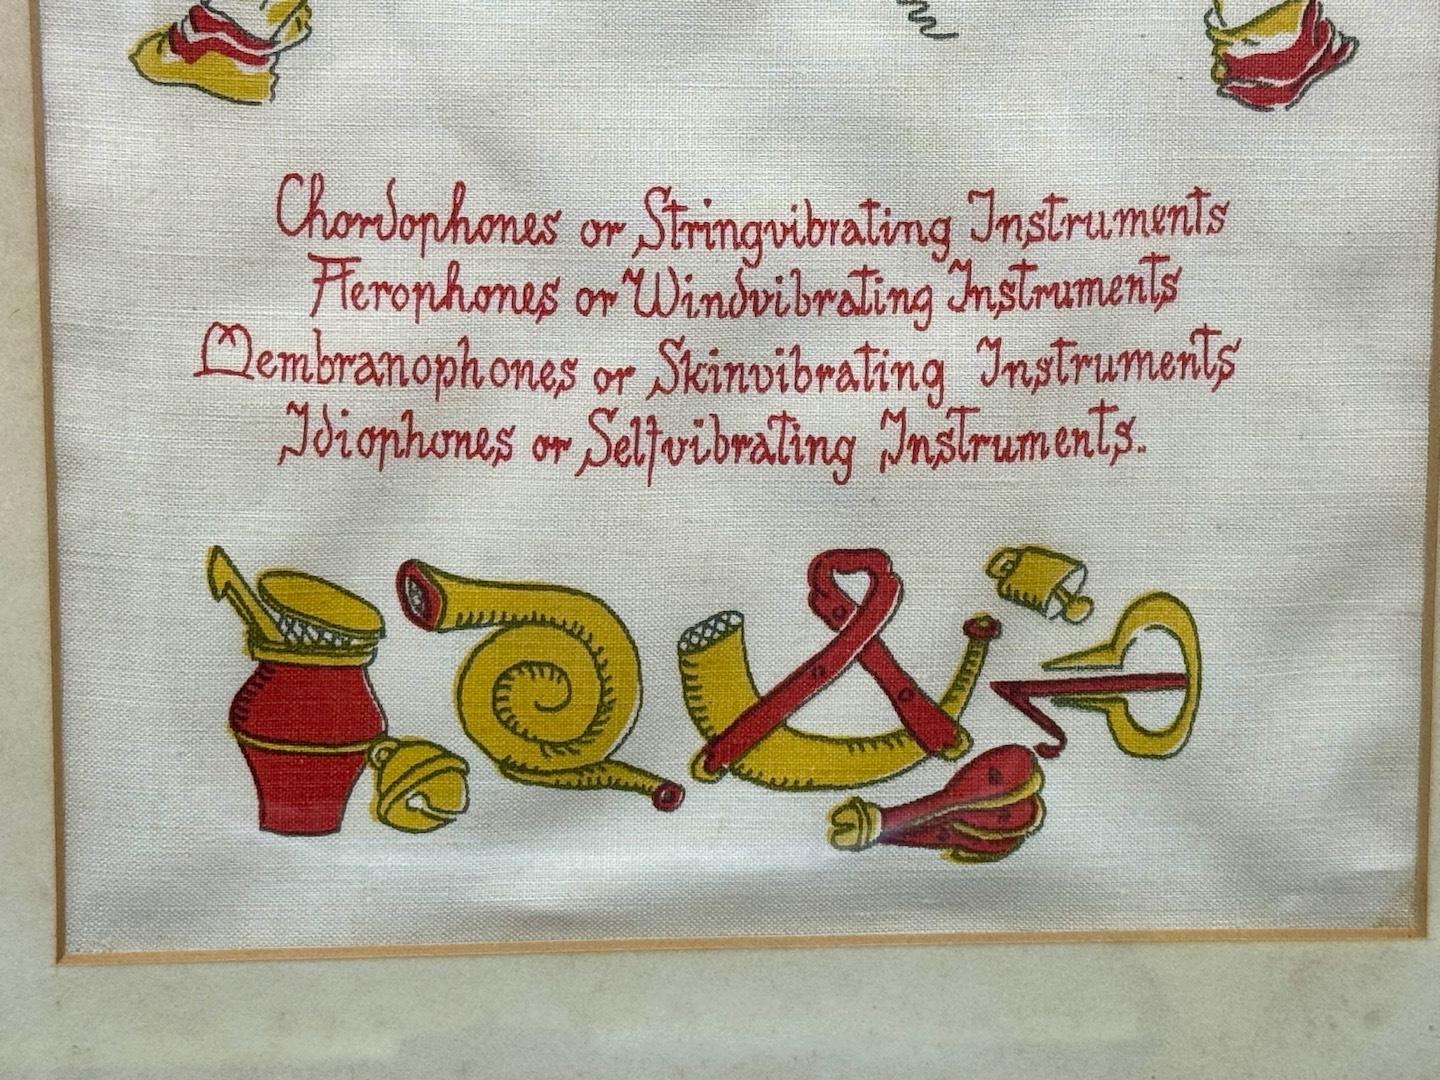 Chordophones or Stringvibrating Instruments
Aerophones or Windvibrating Instruments
Membranophones or Skinvibrating Instruments
Idiophones or Selfvibrating Instruments.